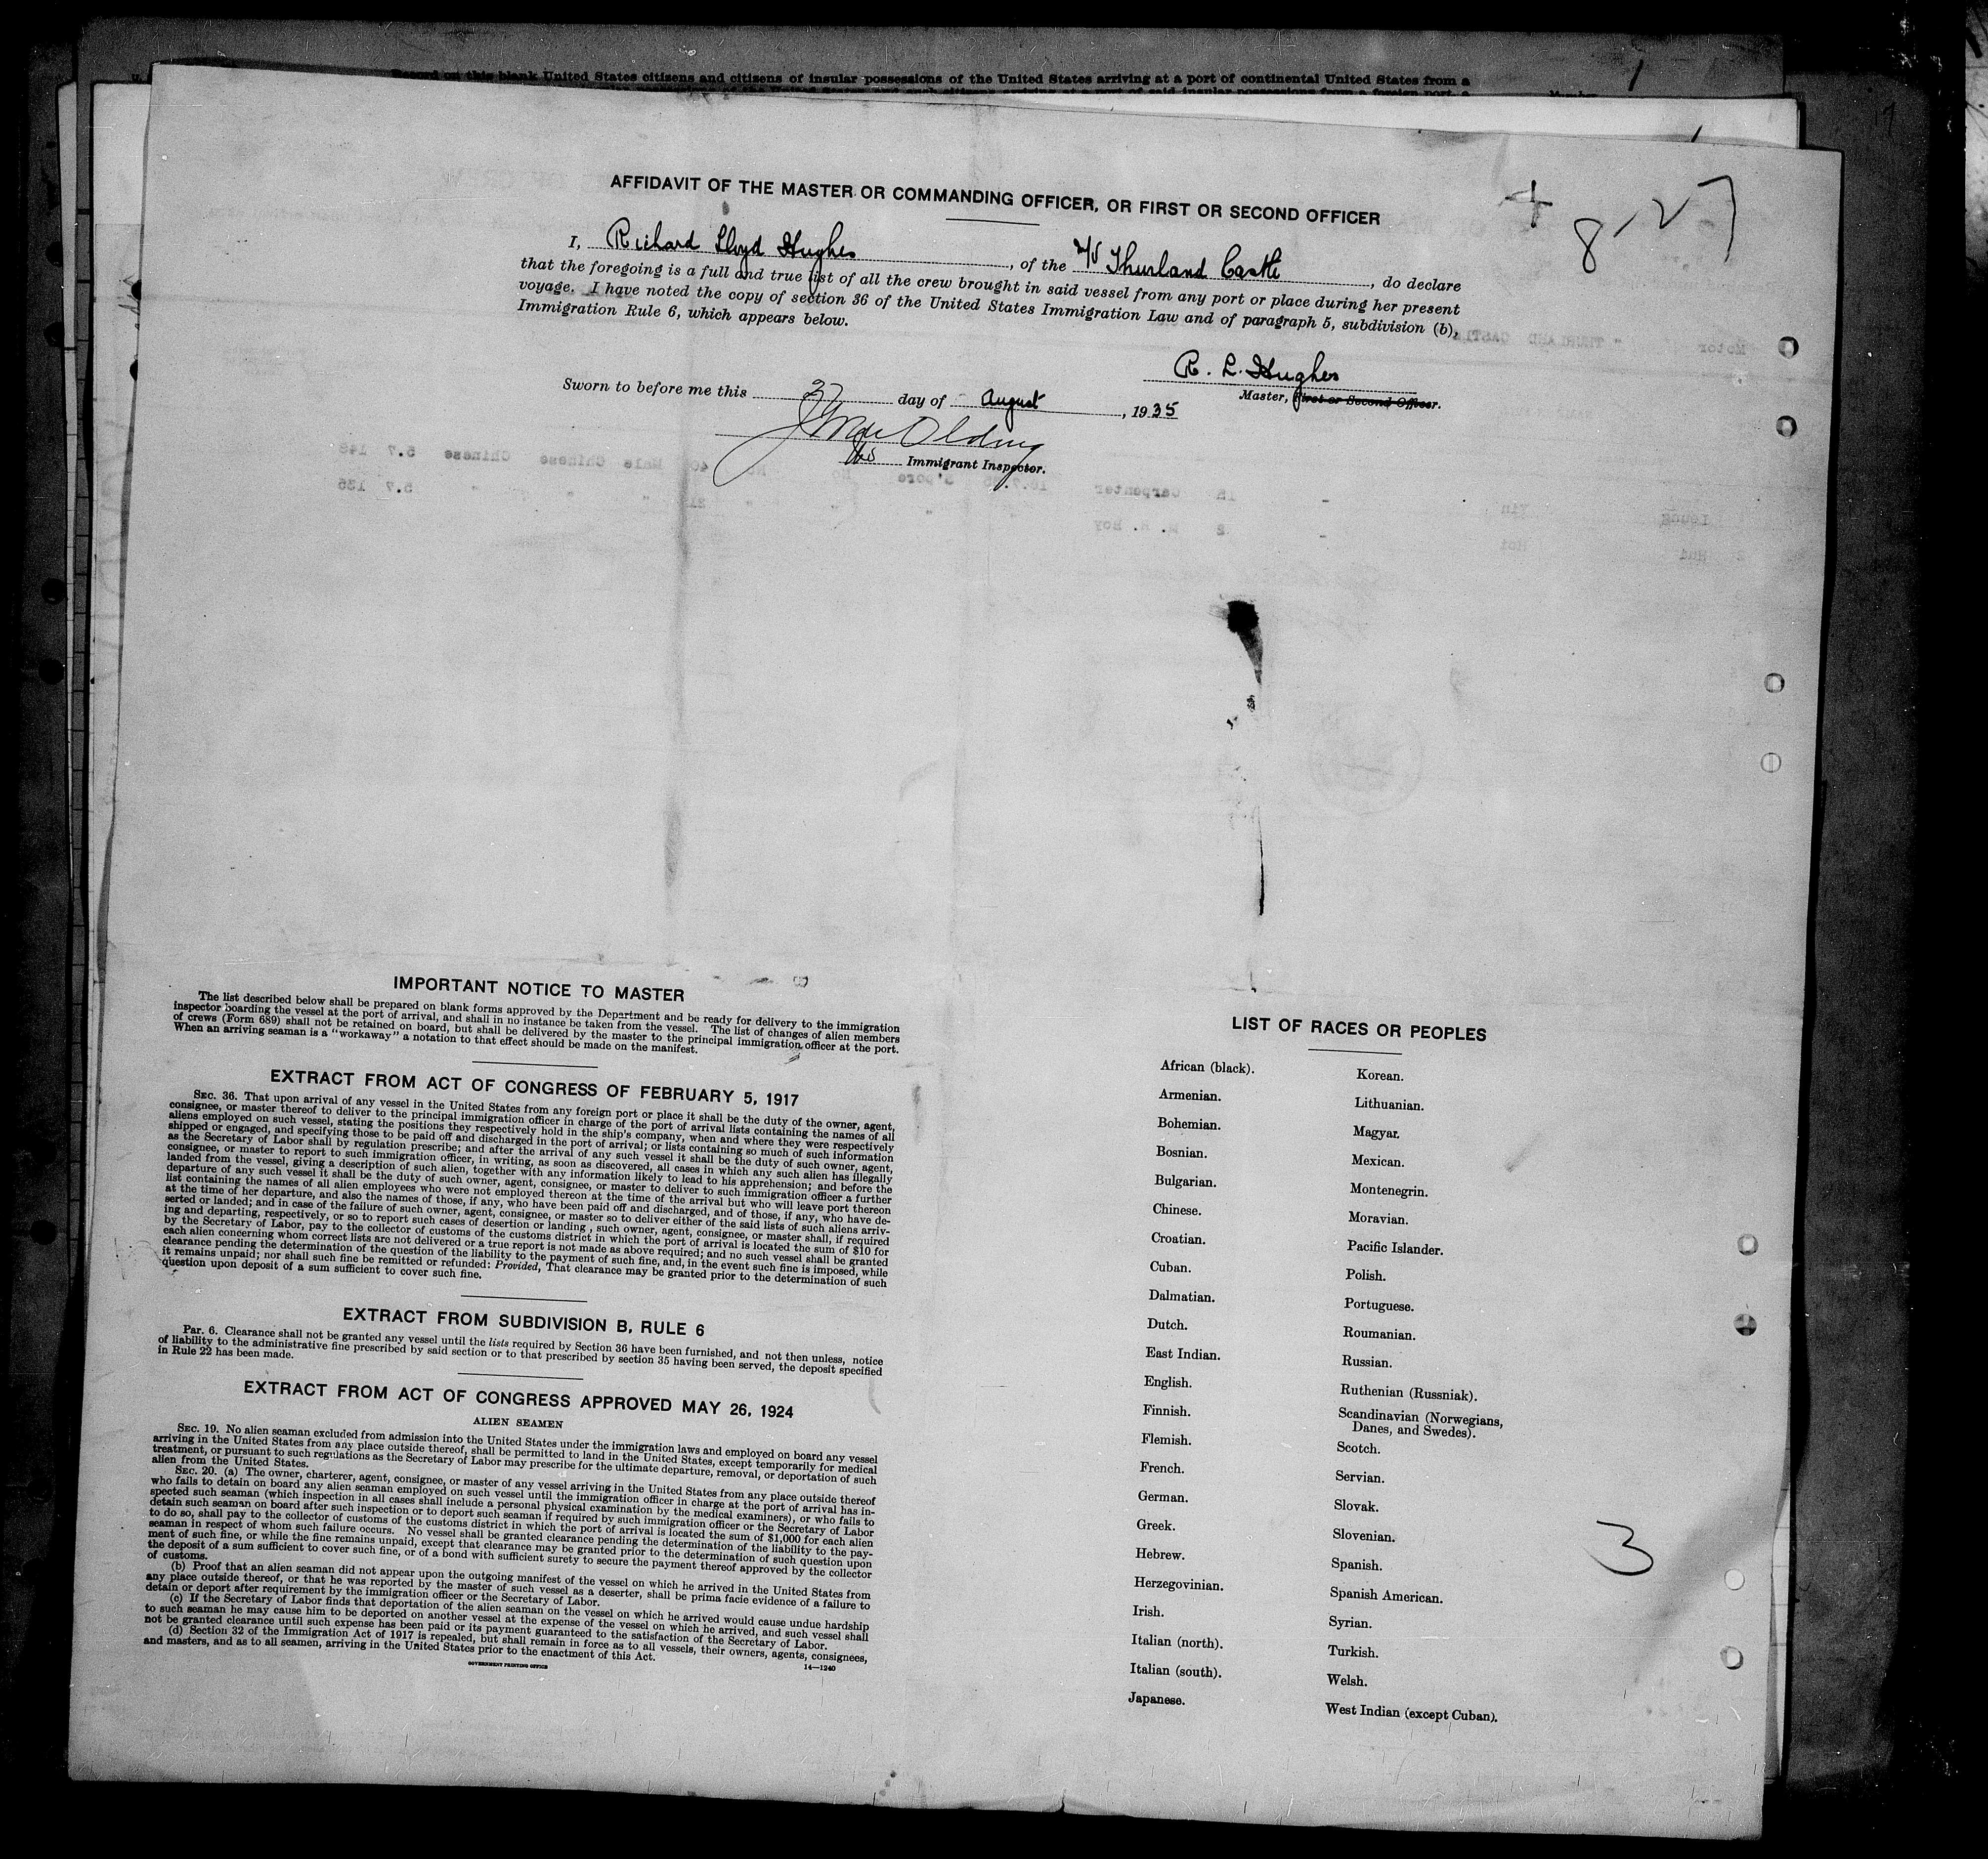 Record on this blank United States citizens and citizens of insular possessions of the United States arriving at a port of continental United States from a
AFFIDAVIT OF THE MASTER OR COMMANDING OFFICER, OR FIRST OR SECOND OFFICER
+ 8-27
I, Richard Lloyd Hughes, of the M/V Thurland Castle, do declare
that the foregoing is a full and true list of all the crew brought in said vessel from any port or place during her present
voyage. I have noted the copy of section 36 of the United States Immigration Law and of paragraph 5, subdivision (b),
Immigration Rule 6, which appears below.
R. L. Hughes
Master, First or Second Officer.
Sworn to before me this 27 day of August, 1935
Immigrant Inspector.
IMPORTANT NOTICE TO MASTER
The list described below shall be prepared on blank forms approved by the Department and be ready for delivery to the immigration
inspector boarding the vessel at the port of arrival, and shall in no instance be taken from the vessel. The list of changes of alien members
of crews (Form 689) shall not be retained on board, but shall be delivered by the master to the principal immigration officer at the port.
When an arriving seaman is a "workaway" a notation to that effect should be made on the manifest.
EXTRACT FROM ACT OF CONGRESS OF FEBRUARY 5, 1917
SEC. 36. That upon arrival of any vessel in the United States from any foreign port or place it shall be the duty of the owner, agent,
consignee, or master thereof to deliver to the principal immigration officer in charge of the port of arrival lists containing the names of all
aliens employed on such vessel, stating the positions they respectively hold in the ship's company, when and where they were respectively
shipped or engaged, and specifying those to be paid off and discharged in the port of arrival; or lists containing so much of such information
as the Secretary of Labor shall by regulation prescribe; and after the arrival of any such vessel it shall be the duty of such owner, agent,
consignee, or master to report to such immigration officer, in writing, as soon as discovered, all cases in which any such alien has illegally
landed from the vessel, giving a description of such alien, together with any information likely to lead to his apprehension; and before the
departure of any such vessel it shall be the duty of such owner, agent, consignee, or master to deliver to such immigration officer a further
list containing the names of all alien employees who were not employed thereon at the time of the arrival but who will leave port thereon
at the time of her departure, and also the names of those, if any, who have been paid off and discharged, and of those, if any, who have de-
serted or landed; and in case of the failure of such owner, agent, consignee, or master so to deliver either of the said lists of such aliens arriv-
ing and departing, respectively, or so to report such cases of desertion or landing, such owner, agent, consignee, or master shall, if required
by the Secretary of Labor, pay to the collector of customs of the customs district in which the port of arrival is located the sum of $10 for
each alien concerning whom correct lists are not delivered or a true report is not made as above required; and no such vessel shall be granted
clearance pending the determination of the question of the liability to the payment of such fine, and, in the event such fine is imposed, while
it remains unpaid; nor shall such fine be remitted or refunded: Provided, That clearance may be granted prior to the determination of such
question upon deposit of a sum sufficient to cover such fine.
EXTRACT FROM SUBDIVISION B, RULE 6
Par. 6. Clearance shall not be granted any vessel until the lists required by Section 36 have been furnished, and not then unless, notice
of liability to the administrative fine prescribed by said section or to that prescribed by section 35 having been served, the deposit specified
in Rule 22 has been made.
EXTRACT FROM ACT OF CONGRESS APPROVED MAY 26, 1924
ALIEN SEAMEN
SEC. 19. No alien seaman excluded from admission into the United States under the immigration laws and employed on board any vessel
arriving in the United States from any place outside thereof, shall be permitted to land in the United States, except temporarily for medical
treatment, or pursuant to such regulations as the Secretary of Labor may prescribe for the ultimate departure, removal, or deportation of such
alien from the United States.
SEC. 20. (a) The owner, charterer, agent, consignee, or master of any vessel arriving in the United States from any place outside thereof
who fails to detain on board any alien seaman employed on such vessel until the immigration officer in charge at the port of arrival has in-
spected such seaman (which inspection in all cases shall include a personal physical examination by the medical examiners), or who fails to
detain such seaman on board after such inspection or to deport such seaman if required by such immigration officer or the Secretary of Labor
to do so, shall pay to the collector of customs of the customs district in which the port of arrival is located the sum of $1,000 for each alien
seaman in respect of whom such failure occurs. No vessel shall be granted clearance pending the determination of the liability to the pay-
ment of such fine, or while the fine remains unpaid, except that clearance may be granted prior to the determination of such question upon
the deposit of a sum sufficient to cover such fine, or of a bond with sufficient surety to secure the payment thereof approved by the collector
of customs.
(b) Proof that an alien seaman did not appear upon the outgoing manifest of the vessel on which he arrived in the United States from
any place outside thereof, or that he was reported by the master of such vessel as a deserter, shall be prima facie evidence of a failure to
detain or deport after requirement by the immigration officer or the Secretary of Labor.
(c) If the Secretary of Labor finds that deportation of the alien seaman on the vessel on which he arrived would cause undue hardship
to such seaman he may cause him to be deported on another vessel at the expense of the vessel on which he arrived, and such vessel shall
not be granted clearance until such expense has been paid or its payment guaranteed to the satisfaction of the Secretary of Labor.
(d) Section 32 of the Immigration Act of 1917 is repealed, but shall remain in force as to all vessels, their owners, agents, consignees,
and masters, and as to all seamen, arriving in the United States prior to the enactment of this Act.
GOVERNMENT PRINTING OFFICE 14—1240
LIST OF RACES OR PEOPLES
African (black).
Armenian.
Bohemian.
Bosnian.
Bulgarian.
Chinese.
Croatian.
Cuban.
Dalmatian.
Dutch.
East Indian.
English.
Finnish.
Flemish.
French.
German.
Greek.
Hebrew.
Herzegovinian.
Irish.
Italian (north).
Italian (south).
Japanese.
Korean.
Lithuanian.
Magyar.
Mexican.
Montenegrin.
Moravian.
Pacific Islander.
Polish.
Portuguese.
Roumanian.
Russian.
Ruthenian (Russniak).
Scandinavian (Norwegians,
Danes, and Swedes).
Scotch.
Servian.
Slovak.
Slovenian.
Spanish.
Spanish American.
Syrian.
Turkish.
Welsh.
West Indian (except Cuban).
3